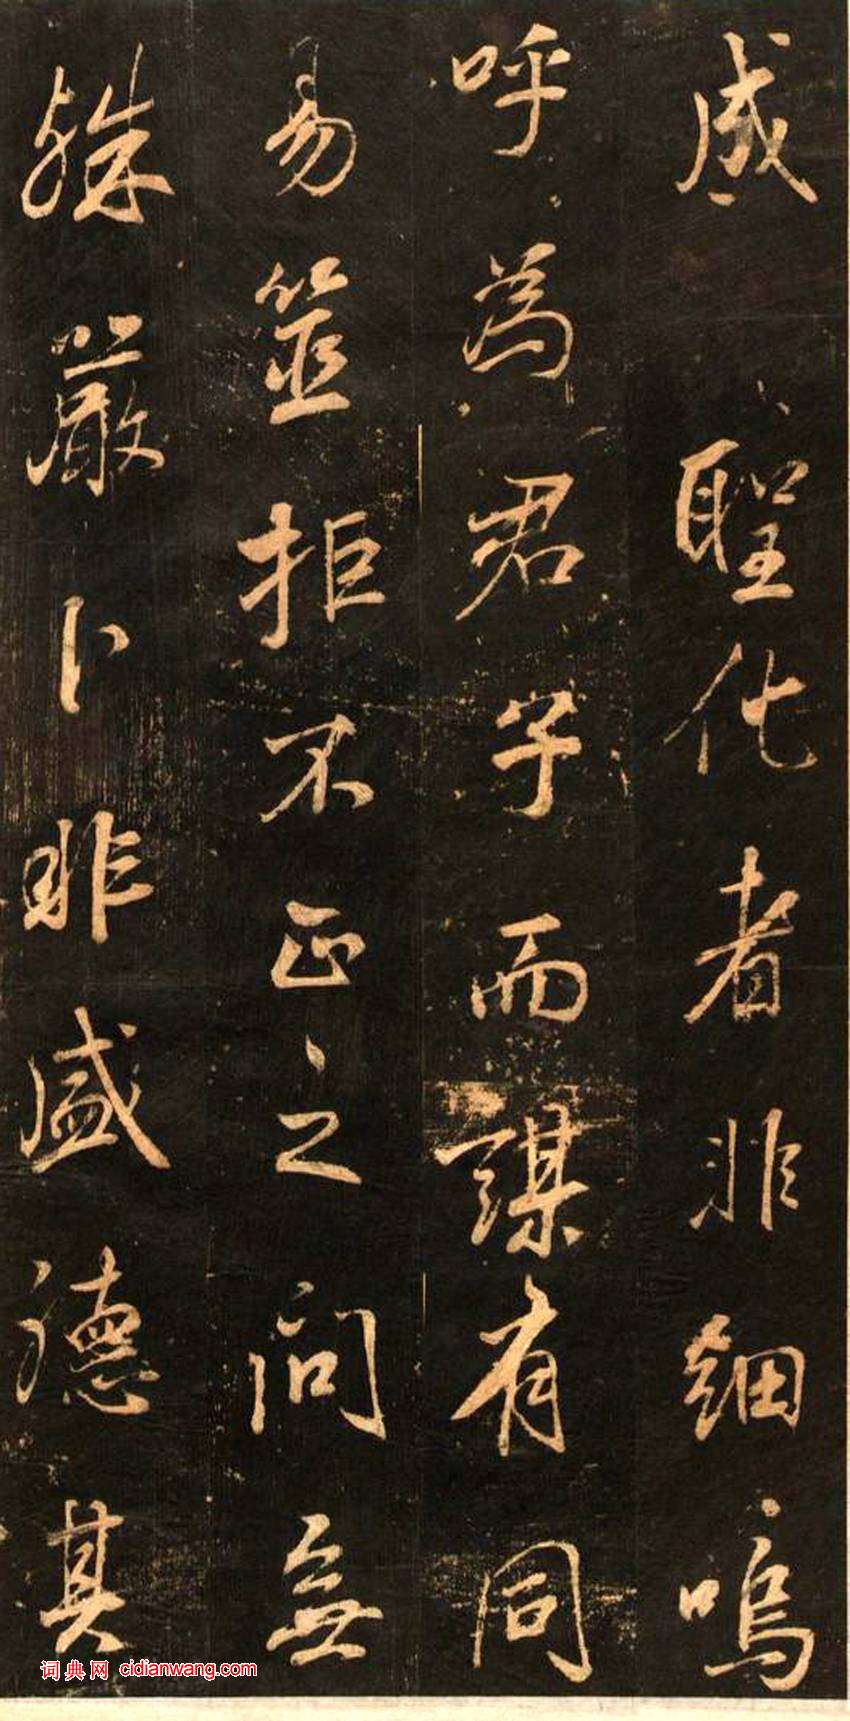 成 聖化者非細嗚
呼為君子而謀有同
易筮拒不正之問無
殊嚴卜非盛德其
词典网 cidianwang.com